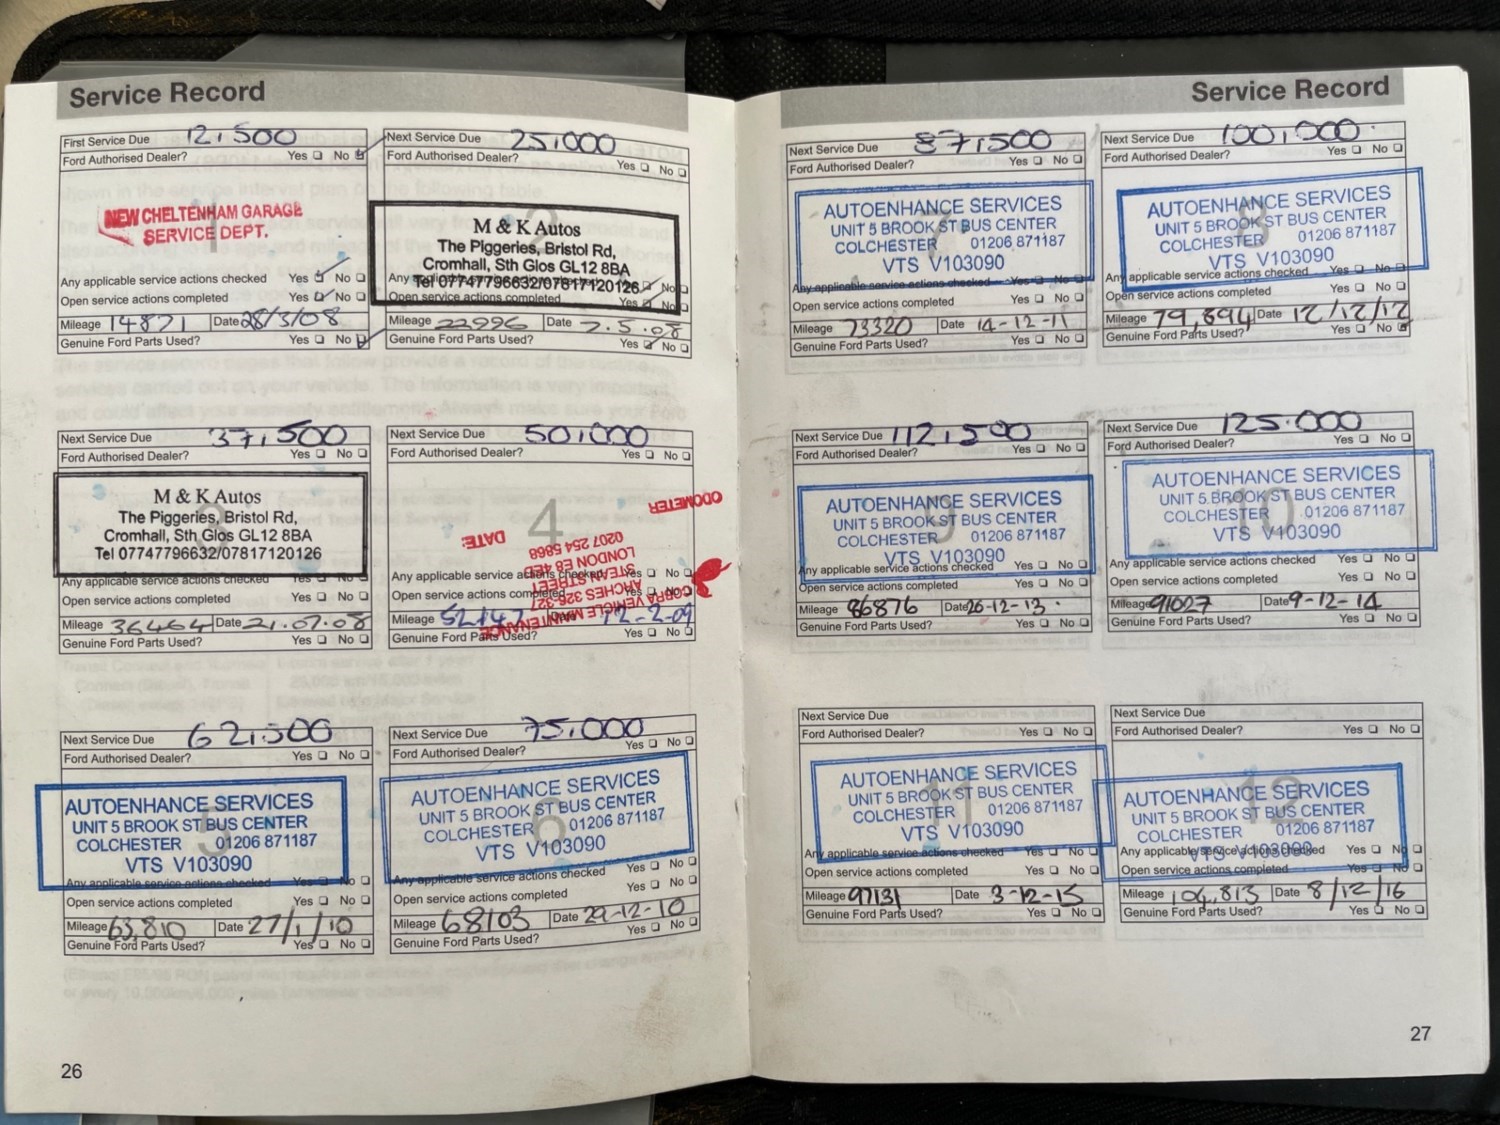 Service Record
First Service Due 12,500
Ford Authorised Dealer? Yes No
NEW CHELTENHAM GARAGE
SERVICE DEPT.
Any applicable service actions checked Yes No
Open service actions completed Yes No
Mileage 14871 Date 28/3/08
Genuine Ford Parts Used? Yes No
Next Service Due 25,000
Ford Authorised Dealer? Yes No
2
M & K Autos
The Piggeries, Bristol Rd,
Cromhall, Sth Glos GL12 8BA
Tel 07747796632/07817120126
Any applicable service actions checked Yes No
Open service actions completed Yes No
Mileage 22996 Date 7.5.08
Genuine Ford Parts Used? Yes No
Next Service Due 37,500
Ford Authorised Dealer? Yes No
3
M & K Autos
The Piggeries, Bristol Rd,
Cromhall, Sth Glos GL12 8BA
Tel 07747796632/07817120126
Any applicable service actions checked Yes No
Open service actions completed Yes No
Mileage 36464 Date 21.07.08
Genuine Ford Parts Used? Yes No
Next Service Due 50,000
Ford Authorised Dealer? Yes No
4
COBRA VEHICLE MAINTENANCE
ARCHES 326-327
STEAN STREET
LONDON E8 4ED
0207 254 5868
DATE:
ODOMETER
Any applicable service actions checked Yes No
Open service actions completed Yes No
Mileage 52147 Date 12-2-09
Genuine Ford Parts Used? Yes No
Next Service Due 62,500
Ford Authorised Dealer? Yes No
5
AUTOENHANCE SERVICES
UNIT 5 BROOK ST BUS CENTER
COLCHESTER 01206 871187
VTS V103090
Any applicable service actions checked Yes No
Open service actions completed Yes No
Mileage 63,810 Date 27/1/10
Genuine Ford Parts Used? Yes No
Next Service Due 75,000
Ford Authorised Dealer? Yes No
6
AUTOENHANCE SERVICES
UNIT 5 BROOK ST BUS CENTER
COLCHESTER 01206 871187
VTS V103090
Any applicable service actions checked Yes No
Open service actions completed Yes No
Mileage 68103 Date 29-12-10
Genuine Ford Parts Used? Yes No
26
Service Record
Next Service Due 87,500
Ford Authorised Dealer? Yes No
7
AUTOENHANCE SERVICES
UNIT 5 BROOK ST BUS CENTER
COLCHESTER 01206 871187
VTS V103090
Any applicable service actions checked Yes No
Open service actions completed Yes No
Mileage 73320 Date 14-12-11
Genuine Ford Parts Used? Yes No
Next Service Due 100,000
Ford Authorised Dealer? Yes No
8
AUTOENHANCE SERVICES
UNIT 5 BROOK ST BUS CENTER
COLCHESTER 01206 871187
VTS V103090
Any applicable service actions checked Yes No
Open service actions completed Yes No
Mileage 79,894 Date 12/12/12
Genuine Ford Parts Used? Yes No
Next Service Due 112,500
Ford Authorised Dealer? Yes No
9
AUTOENHANCE SERVICES
UNIT 5 BROOK ST BUS CENTER
COLCHESTER 01206 871187
VTS V103090
Any applicable service actions checked Yes No
Open service actions completed Yes No
Mileage 86876 Date 26-12-13
Genuine Ford Parts Used? Yes No
Next Service Due 125.000
Ford Authorised Dealer? Yes No
10
AUTOENHANCE SERVICES
UNIT 5 BROOK ST BUS CENTER
COLCHESTER 01206 871187
VTS V103090
Any applicable service actions checked Yes No
Open service actions completed Yes No
Mileage 91027 Date 9-12-14
Genuine Ford Parts Used? Yes No
Next Service Due
Ford Authorised Dealer? Yes No
11
AUTOENHANCE SERVICES
UNIT 5 BROOK ST BUS CENTER
COLCHESTER 01206 871187
VTS V103090
Any applicable service actions checked Yes No
Open service actions completed Yes No
Mileage 97131 Date 3-12-15
Genuine Ford Parts Used? Yes No
Next Service Due
Ford Authorised Dealer? Yes No
12
AUTOENHANCE SERVICES
UNIT 5 BROOK ST BUS CENTER
COLCHESTER 01206 871187
VTS V103090
Any applicable service actions checked Yes No
Open service actions completed Yes No
Mileage 104,813 Date 8/12/16
Genuine Ford Parts Used? Yes No
27